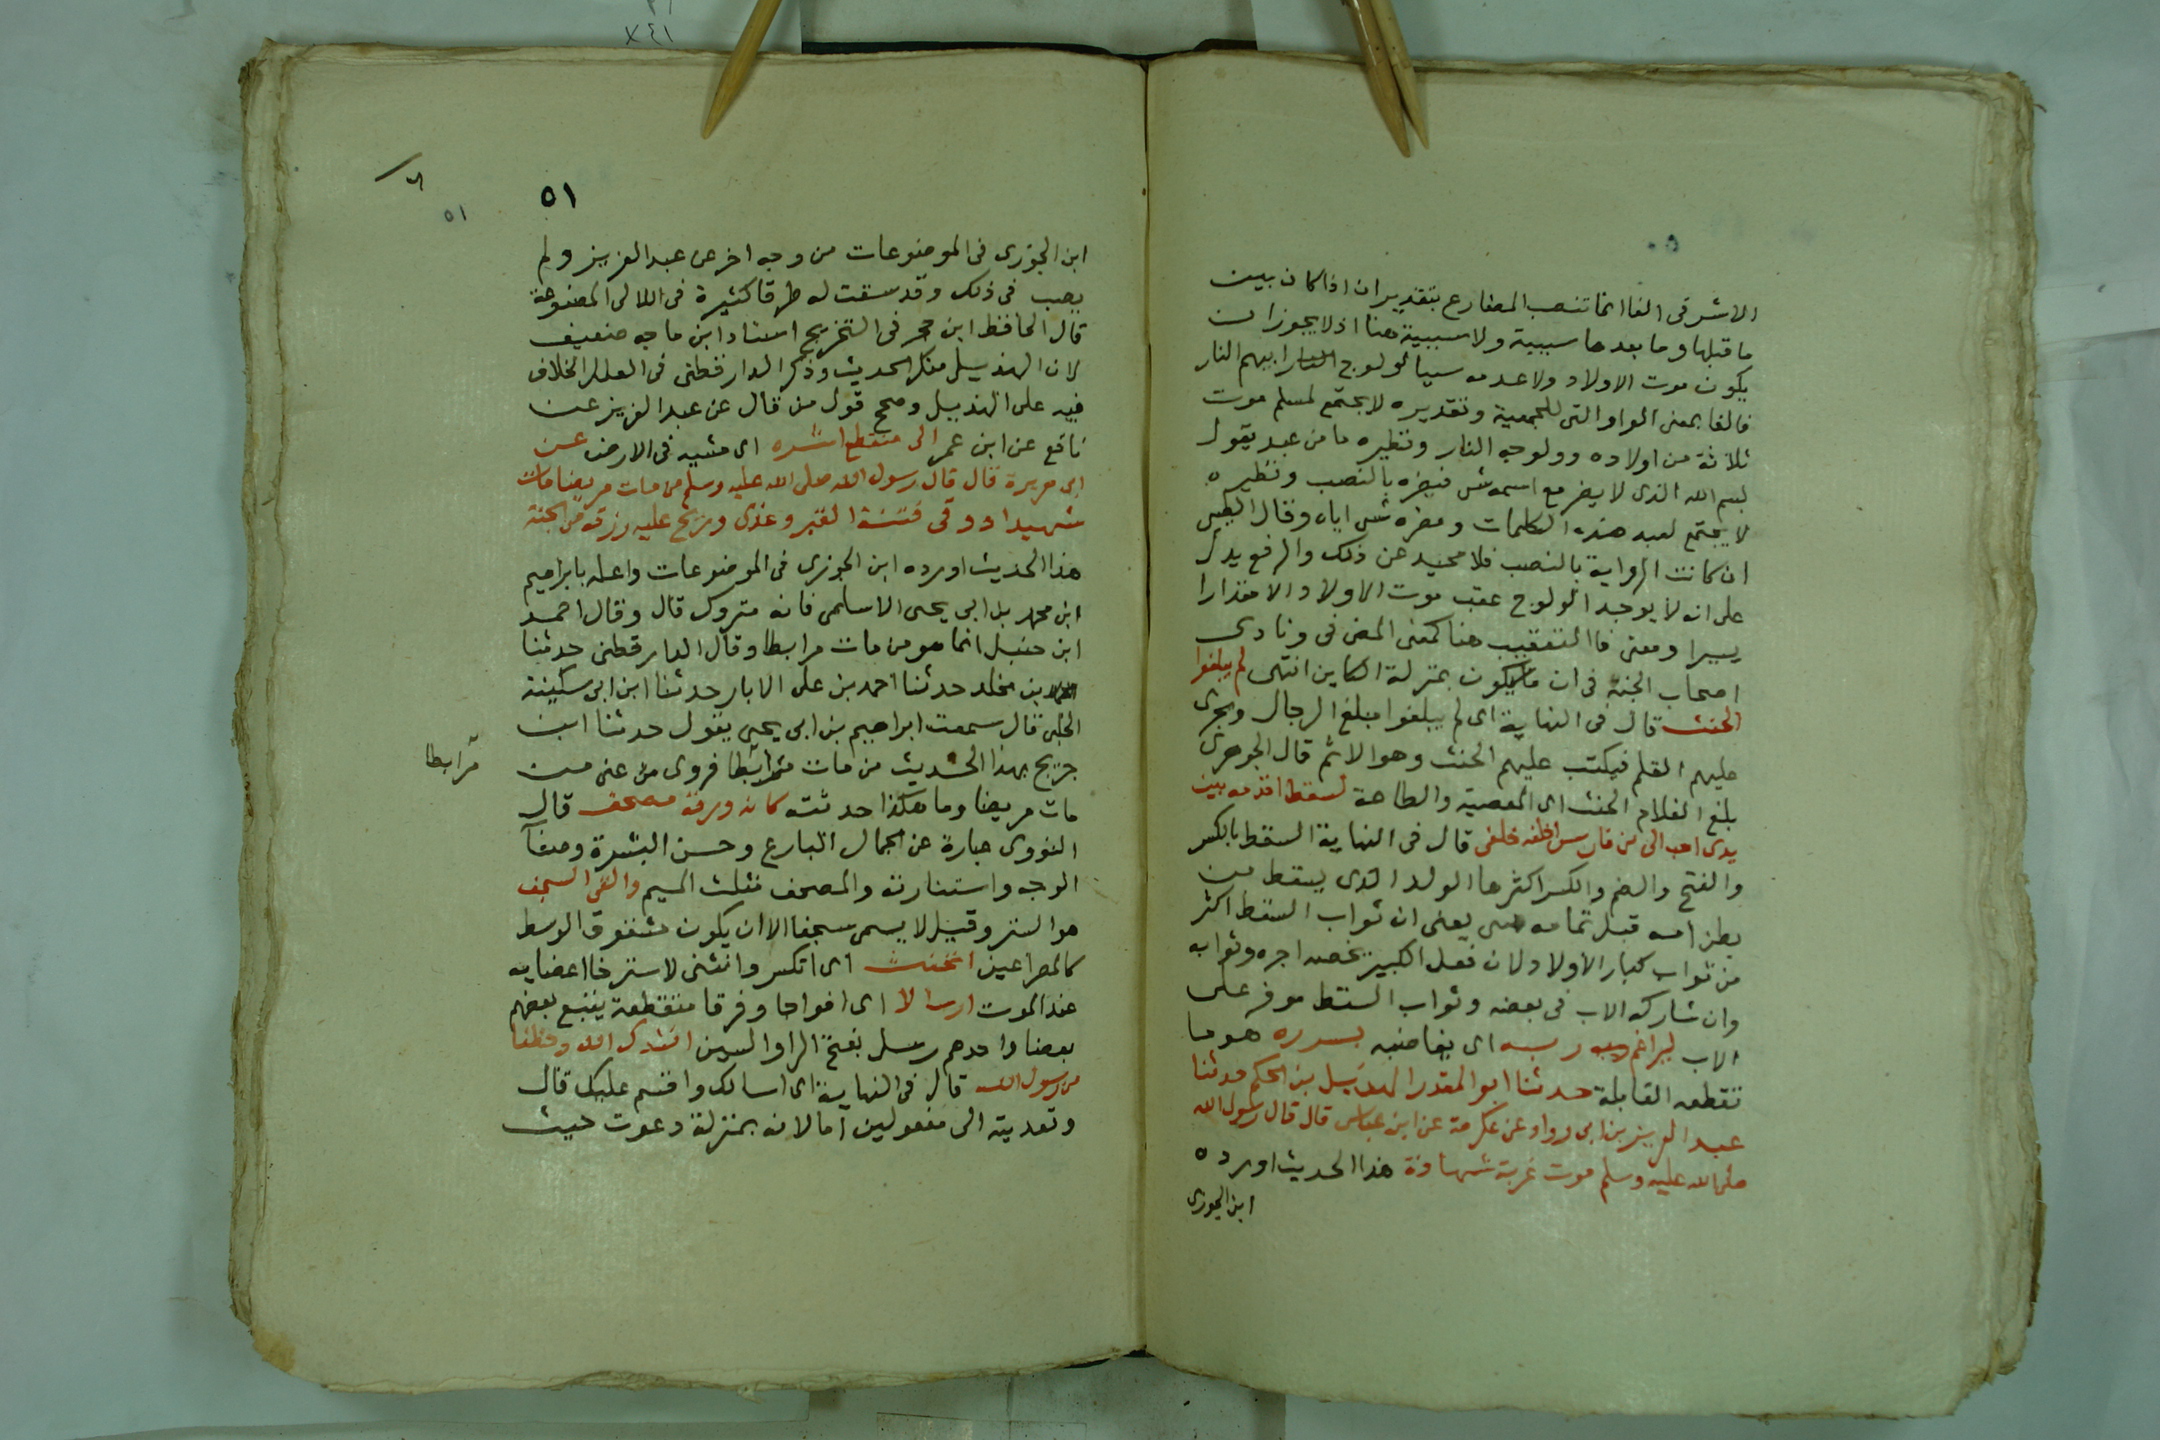 ٥٠
الاشرفى الفا انما تنصب المضارع بتقدير ان اذا كان بين
ما قبلها وما بعدها سببية ولا سببية هنا اذ لا يجوز ان
يكون موت الاولاد ولا عدمه سببا لولوج ابيهم النار
فالفا بمعنى الواو التى للجمعية وتقديره لا يجتمع لمسلم موت
ثلاثة من اولاده وولوجه النار ونظيره ما من عبد يقول
بسم الله الذى لا يضر مع اسمه شى فيضره بالنصب ونظيره
لا يجتمع لعبد هذه الكلمات ومضره شى اياه وقال الطيبى
ان كانت الرواية بالنصب فلا محيد عن ذلك والرفع يدل
على انه لا يوجد الولوج عقب موت الاولاد الا مقدارا
يسيرا ومعنى فا التعقيب هنا كمعنى المضى فى ونادى
اصحاب الجنة فى ان ما سيكون بمنزلة الكاين انتهى لم يبلغوا
الحنث قال فى النهاية اى لم يبلغوا مبلغ الرجال ويجرى
عليهم القلم فيكتب عليهم الحنث وهو الاثم قال الجوهرى
بلغ الغلام الحنث اى المعصية والطاعة لسقط اقدمه بين
يدى احب الى من فارس اخلفه خلفى قال فى النهاية السقط بالكسر
والفتح والضم والكسر اكثرها الولد الذى يسقط من
بطن امه قبل تمامه يعنى ان ثواب السقط اكثر
من ثواب كبار الاولاد لان فعل الكبير يخصه اجره وثوابه
وان شاركه الاب فى بعضه وثواب السقط موفر على
الاب ليراغم ربه اى يغاضبه بسرره هو ما
تقطعه القابلة حدثنا ابو المنذر الهذيل بن الحكم حدثنا
عبد العزيز بن ابى رواد عن عكرمة عن ابن عباس قال قال رسول الله
صلى الله عليه وسلم موت غربة شهادة هذا الحديث اورده
ابن الجوزى
٥١
٥١
ابن الجوزى فى الموضوعات من وجه اخر عن عبد العزيز ولم
يصب فى ذلك وقد سقت له طرقا كثيرة فى اللالى المصنوعة
قال الحافظ ابن حجر فى التخريج اسناد ابن ماجه ضعيف
لان الهذيل منكر الحديث وذكر الدارقطنى فى العلل الخلاف
فيه على الهذيل وصحح قول من قال عن عبد العزيز عن
نافع عن ابن عمر الى منقطع اثره اى مشيه فى الارض عن
ابى هريرة قال قال رسول الله صلى الله عليه وسلم من مات مريضا مات
شهيدا ووقى فتنة القبر وغدى وريح عليه برزقه من الجنة
هذا الحديث اورده ابن الجوزى فى الموضوعات واعله بابراهيم
ابن محمد بن ابى يحيى الاسلمى فانه متروك قال وقال احمد
ابن حنبل انما هو من مات مرابطا وقال الدارقطنى حدثنا
بن مخلد حدثنا احمد بن على الابار حدثنا ابن ابى سكينة
الحلبى قال سمعت ابراهيم بن ابى يحيى يقول حدثنا ابن
جريج بهذا الحديث من مات مرابطا فروى عنى من
مرابطا
مات مريضا وما هكذا حدثته كانه ورقة مصحف قال
النووى عبارة عن الجمال البارع وحسن البشرة وصفا
الوجه واستنارته والمصحف مثلث الميم والقى السجف
هو الستر وقيل لا يسمى سجفا الا ان يكون مشقوق الوسط
كالمصراعين انخنث اى انكسر وانثنى لاسترخا اعضايه
عند الموت ارسالا اى افواجا وفرقا متقطعة يتبع بعضهم
بعضا واحدهم رسل بفتح الرا والسين انشدك الله وحظنا
من رسول الله قال فى النهاية اى اسالك واقسم عليك قال
وتعديته الى مفعولين اما لانه بمنزلة دعوت حيث